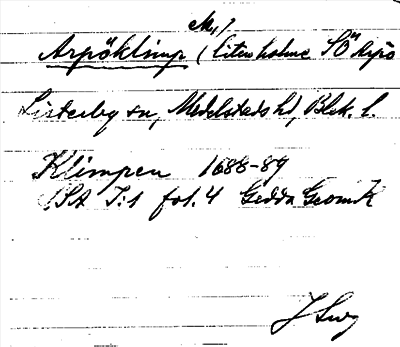 Arpöklimp (liten holme SÖ Arpö
Listerby sn, Medelstads hd, Blek. l.
Klimpen 1688-89
SSA I:1 fol. 4 Gedda Geom K